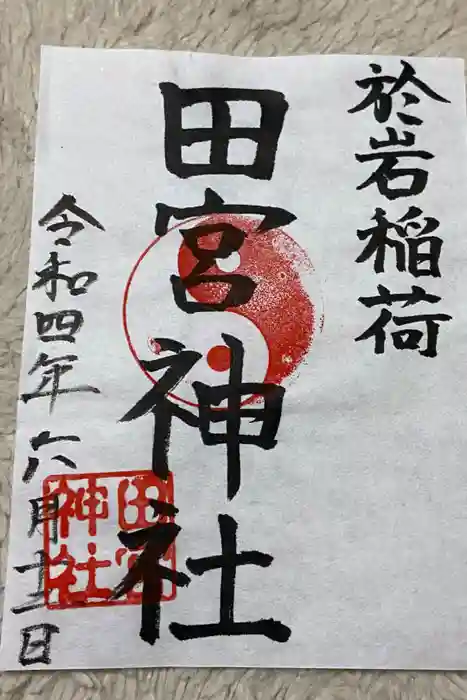 於岩稲荷
田宮神社
令和四年六月十二日
田宮
神社